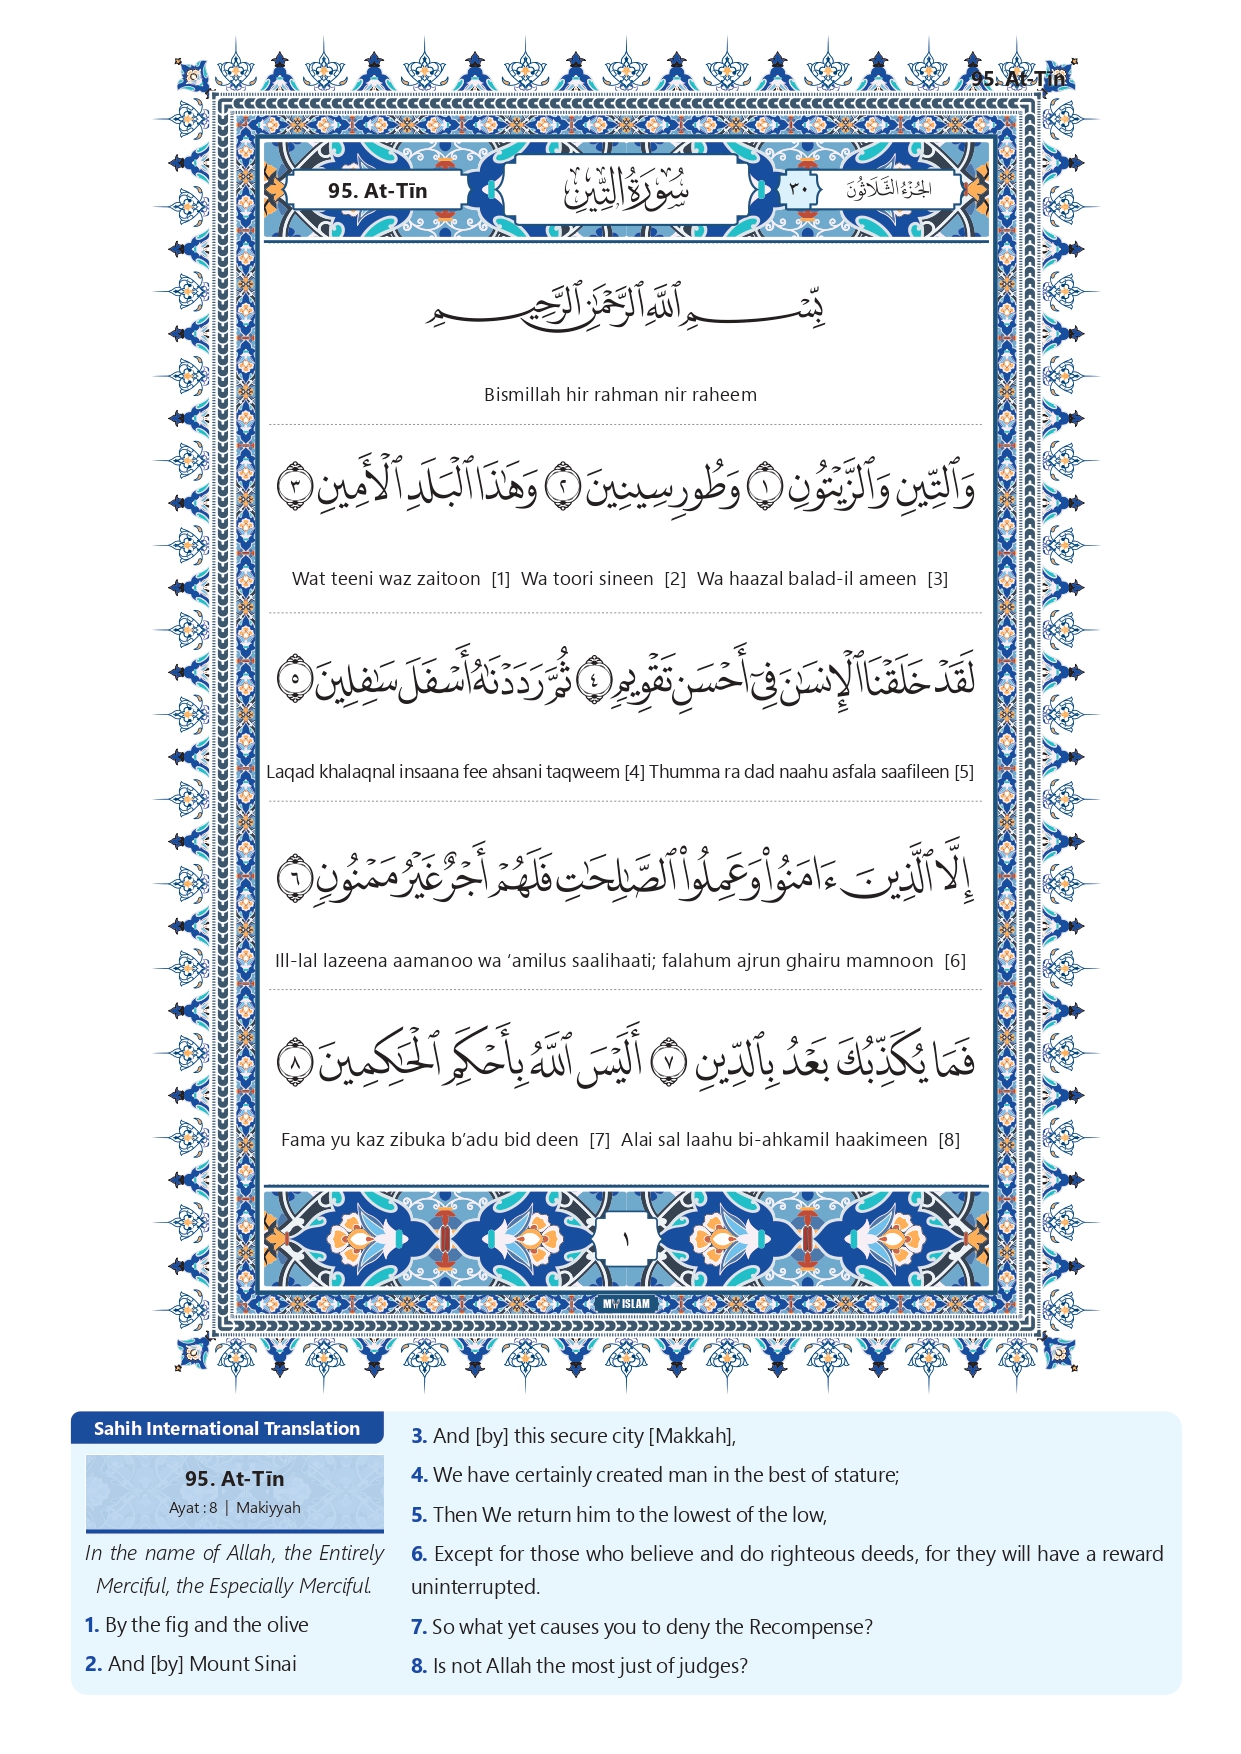 95. At-Tīn
95. At-Tīn
سُورَةُ التِّينِ
٣٠
الجُزْءُ الثَّلَاثُونَ
بِّسْمِ ٱللَّهِ ٱلرَّحْمَٰنِ ٱلرَّحِيمِ
Bismillah hir rahman nir raheem
وَٱلتِّينِ وَٱلزَّيْتُونِ ١ وَطُورِ سِينِينَ ٢ وَهَٰذَا ٱلْبَلَدِ ٱلْأَمِينِ ٣
Wat teeni waz zaitoon [1] Wa toori sineen [2] Wa haazal balad-il ameen [3]
لَقَدْ خَلَقْنَا ٱلْإِنسَٰنَ فِىٓ أَحْسَنِ تَقْوِيمٍ ٤ ثُمَّ رَدَدْنَٰهُ أَسْفَلَ سَٰفِلِينَ ٥
Laqad khalaqnal insaana fee ahsani taqweem [4] Thumma ra dad naahu asfala saafileen [5]
إِلَّا ٱلَّذِينَ ءَامَنُوا۟ وَعَمِلُوا۟ ٱلصَّٰلِحَٰتِ فَلَهُمْ أَجْرٌ غَيْرُ مَمْنُونٍ ٦
Ill-lal lazeena aamanoo wa ‘amilus saalihaati; falahum ajrun ghairu mamnoon [6]
فَمَا يُكَذِّبُكَ بَعْدُ بِٱلدِّينِ ٧ أَلَيْسَ ٱللَّهُ بِأَحْكَمِ ٱلْحَٰكِمِينَ ٨
Fama yu kaz zibuka b’adu bid deen [7] Alai sal laahu bi-ahkamil haakimeen [8]
١
MY ISLAM
Sahih International Translation
95. At-Tīn
Ayat : 8 | Makiyyah
In the name of Allah, the Entirely
Merciful, the Especially Merciful.
1. By the fig and the olive
2. And [by] Mount Sinai
3. And [by] this secure city [Makkah],
4. We have certainly created man in the best of stature;
5. Then We return him to the lowest of the low,
6. Except for those who believe and do righteous deeds, for they will have a reward
uninterrupted.
7. So what yet causes you to deny the Recompense?
8. Is not Allah the most just of judges?